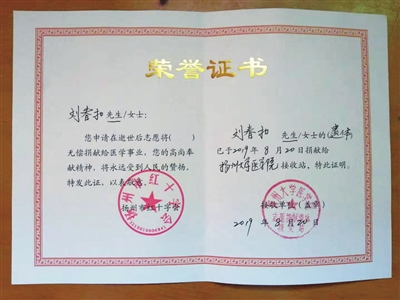 荣誉证书
刘春扣 先生/女士:
您申请在逝世后志愿将( )
无偿捐献给医学事业,您的高尚奉
献精神,将永远受到人民的赞扬,
特发此证,以表敬意。
扬州市红十字会
扬州市红十字会
刘春扣 先生/女士的(遗体)
已于2019年8月20日捐献给
扬州大学医学院接收站,特此证明。
接收单位(盖章)
2019年8月20日